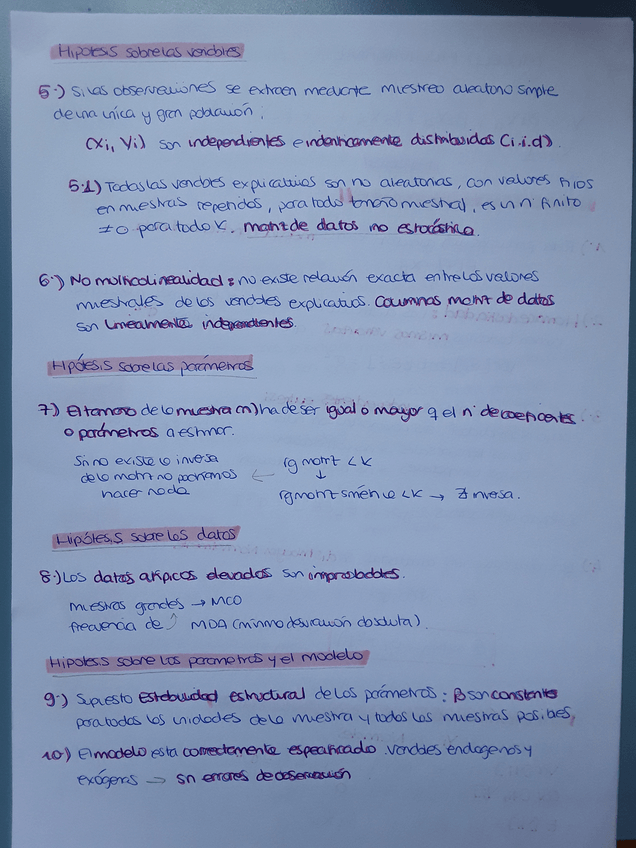 Hipótesis sobre las variables
5.) Si las observaciones se extraen mediante muestreo aleatorio simple
de una única y gran población;
(Xi, Yi) son independientes e indenticamente distribuidas (i.i.d).
5.1) Todas las variables explicativas son no aleatorias, con valores fijos
en muestras repetidas, para todo tamaño muestral, es un nº finito
≠0 para todo K. matriz de datos no estocástica.
6.) No multicolinealidad: no existe relación exacta entre los valores
muestrales de las variables explicativas. Columnas matriz de datos
son linealmente independientes.
Hipótesis sobre los parámetros
7) El tamaño de la muestra (n) ha de ser igual o mayor q el nº de coeficientes
o parámetros a estimar.
Si no existe la inversa
de la matriz no podríamos
hacer nada
← rg matriz < K
↓
rg matriz simétrica < K → ∄ inversa.
Hipótesis sobre los datos
8.) Los datos atípicos elevados son improbables.
muestras grandes → MCO
frecuencia de ↑ MDA (mínima desviación absoluta).
Hipótesis sobre los parámetros y el modelo
9.) Supuesto Estabilidad estructural de los parámetros: β son constantes
para todas las unidades de la muestra y todas las muestras posibles.
10.) El modelo esta correctamente especificado. variables endógenas y
exógenas → sin errores de observación